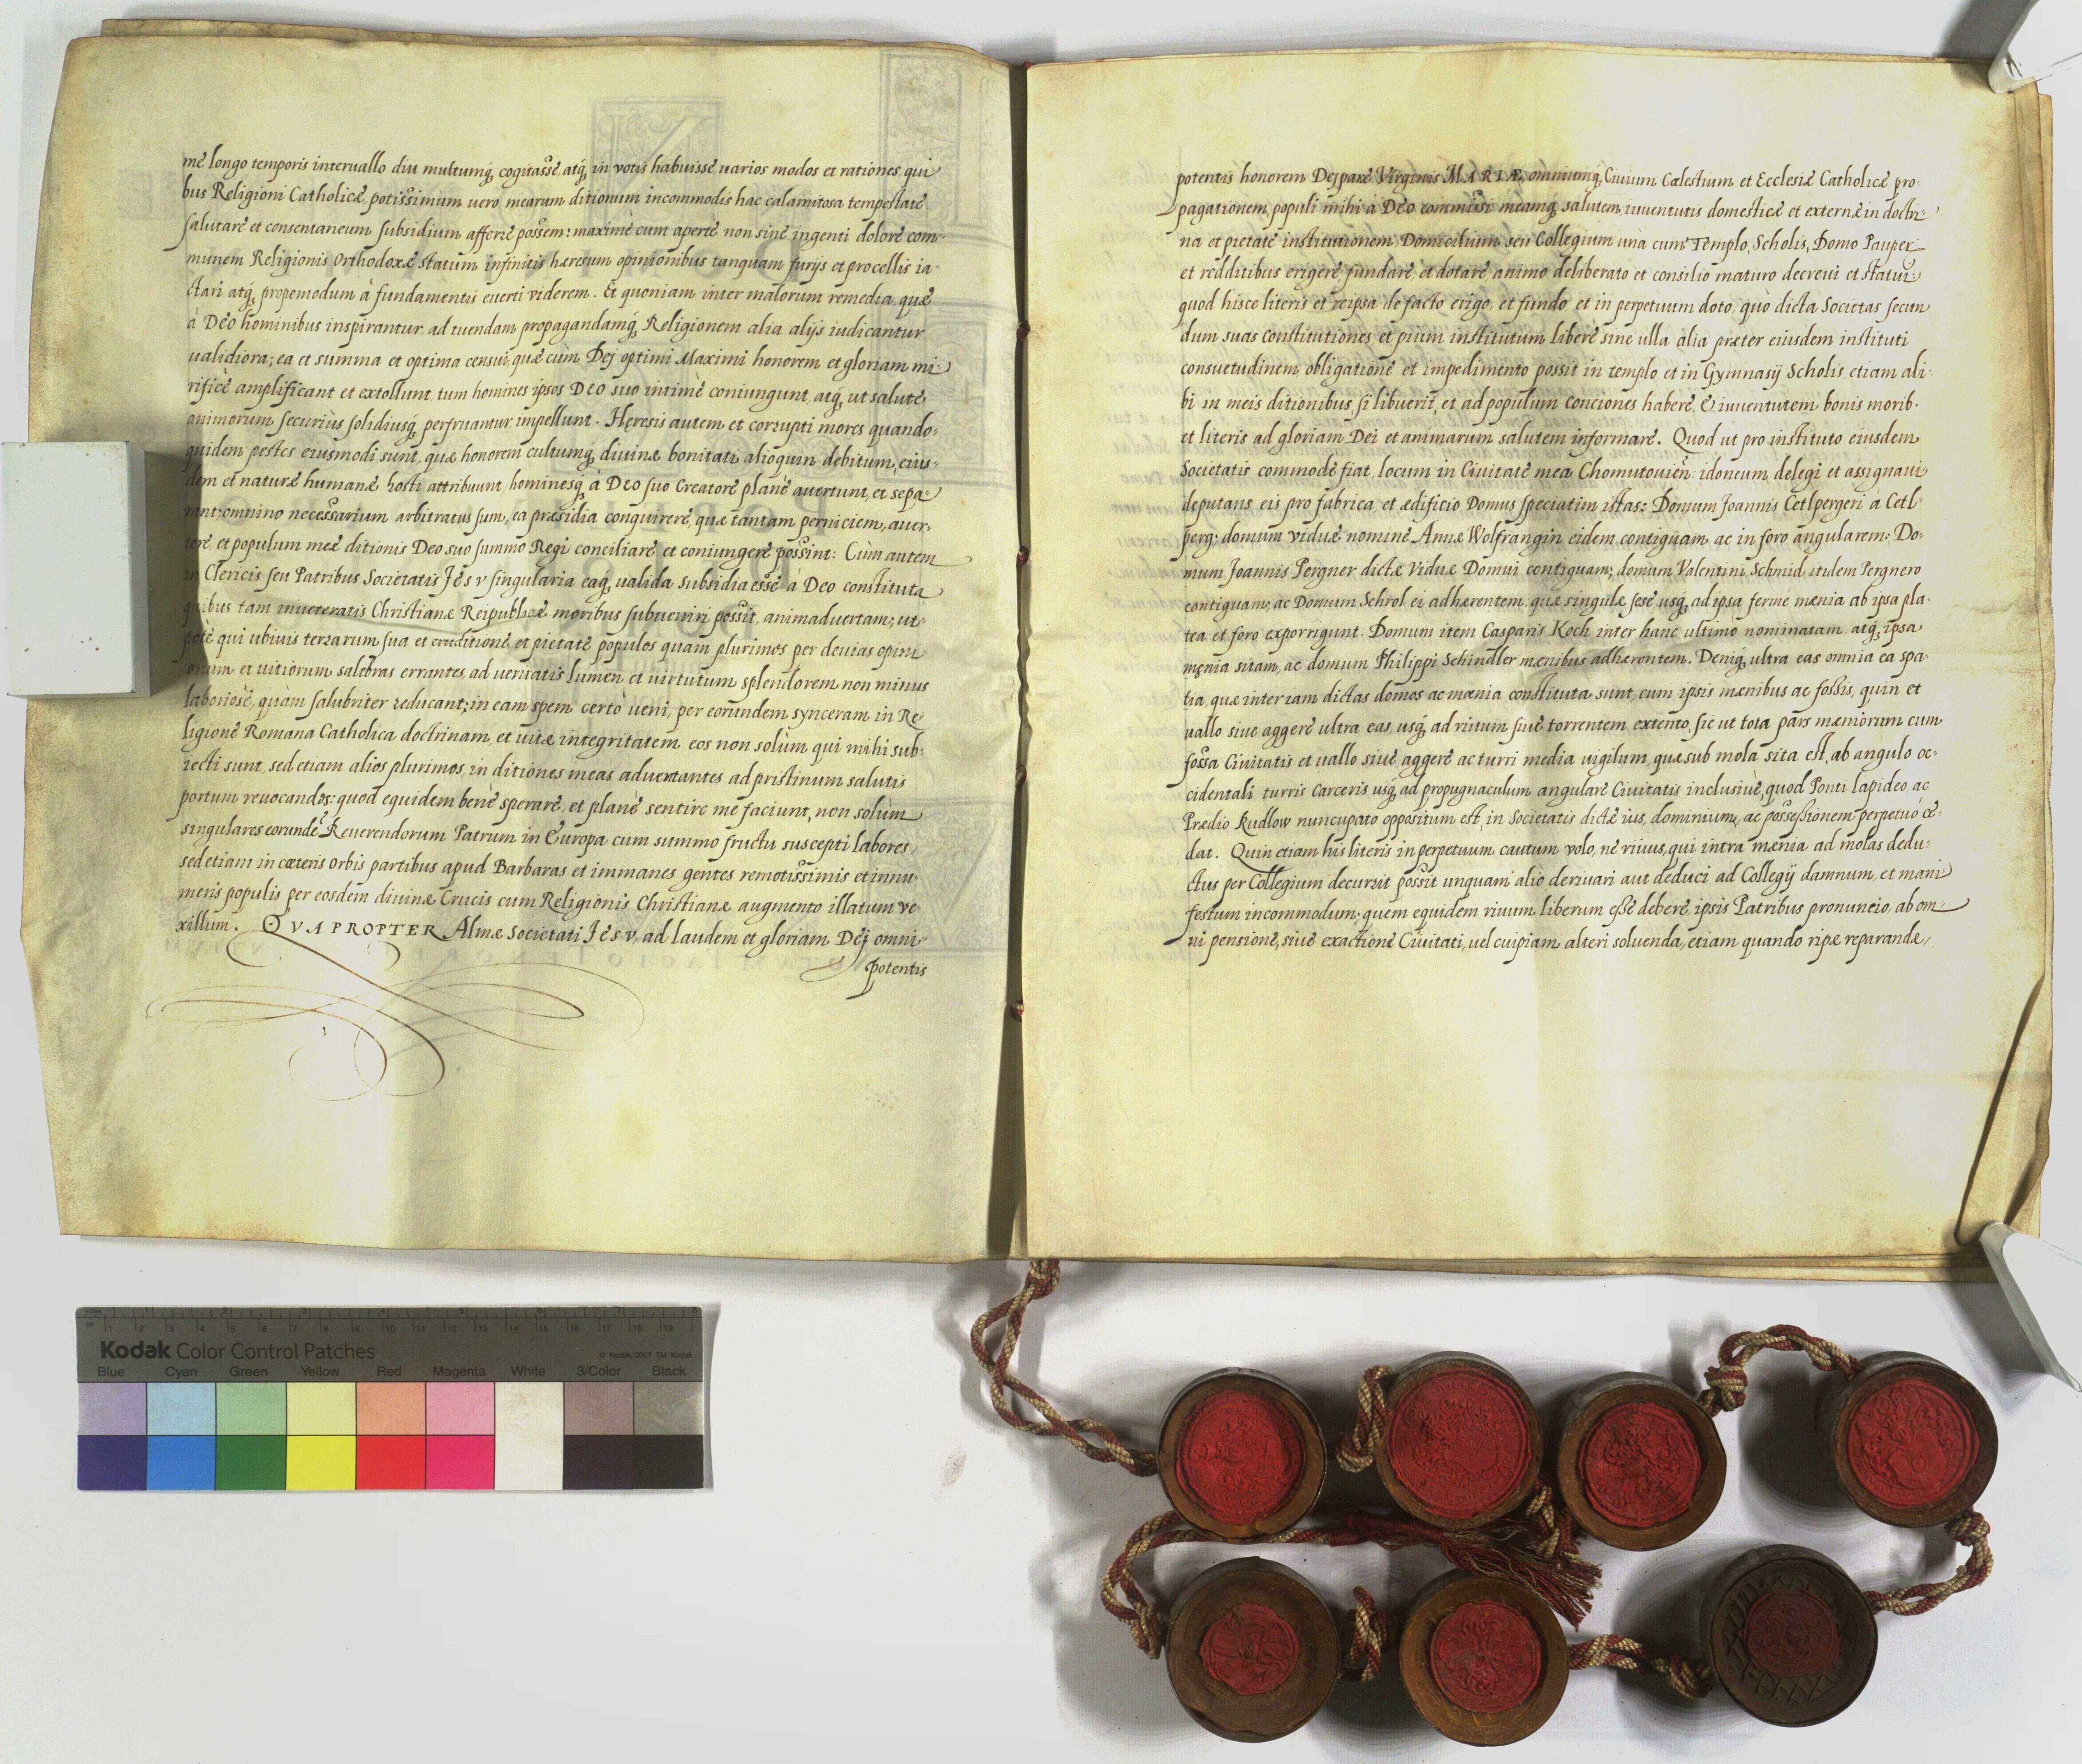 mē longo temporis interuallo diu multumq́; cogitassē, atq́; in votis habuissē, uarios modos et rationes, qui
bus Religioni Catholicæ, potissimum uero mearum ditionum incommodis hac calamitosa tempestatē
salutarē et consentaneum subsidium afferrē possem: maximè cum apertè non sinē ingenti dolorē com-
munem Religionis Orthodoxæ statum infinitis hæresum opinionibus tanquam furijs et procellis ia-
ctari atq́; propemodum à fundamentis euerti viderem. Et quoniam inter malorum remedia, quæ
à DEO hominibus inspirantur ad tuendam propagandamq́; Religionem alia alijs iudicantur
ualidiora; ea et summa et optima censui, quæ cùm Dej optimi Maximi honorem et gloriam mi-
rificè amplificant et extollunt, tum homines ipsos DEO suo intimè coniungunt, atq́; ut salutē
animorum securius solidiusq́; perfruantur impellunt. Hęresis autem et corrupti mores quando-
quidem pestes eiusmodi sunt, quæ honorem cultumq́; diuinæ bonitati alioquin debitum, eius-
dem et naturæ humanæ hosti attribuunt, hominesq́; à DEO suo Creatorē planè auertunt, et sepa-
rant: omnino necessarium arbitratus sum, ea præsidia conquirerē, quæ tantam perniciem, auer-
terē et populum meæ ditionis Deo suo summo Regi conciliarē et coniungerē possint: Cùm autem
in Clericis seu Patribus Societatis JESV singularia eaq́; ualida subsidia essē à Deo constituta
quibus tam inueteratis Christianæ Reipublicæ moribus subueniri possit, animaduertam; ut-
potè qui ubiuis terrarum sua et eruditionē et pietatē populos quam plurimos per deuias opini
onum et uitiorum salebras errantes, ad ueritatis lumen et uirtutum splendorem non minus
laboriosè, quàm salubriter reducant; in eam spem certò ueni, per eorundem synceram in Re-
ligionē Romana Catholica doctrinam, et uitæ integritatem eos non solùm qui mihi sub-
iecti sunt, sed etiam alios plurimos, in ditiones meas aduentantes ad pristinum salutis
portum reuocandos: quod equidem benè sperarē, et planè sentire mē faciunt, non solùm
singulares eorundē Reuerendorum Patrum in Europa cum summo fructu suscepti labores,
sed etiam in cæteris orbis partibus apud Barbaras et immanes gentes remotissimis et innu-
meris populis per eosdem diuinæ Crucis cum Religionis Christianæ augmento illatum ve-
xillum. QVAPROPTER Almæ Societati JESV, ad laudem et gloriam Dej omni-
potentis
potentis honorem Dejparæ Virginis MARIÆ, omniumq́; Ciuium Cælestium et Ecclesiæ Catholicæ pro-
pagationem, populi mihi à DEO commissi meamq́; salutem, iuuentutis domesticæ et externæ in doctri-
na et pietatē institutionem Domicilium seu Collegium unà cum Templo, Scholis, Domo Pauper.
et redditibus erigerē fundarē et dotarē animo deliberato et consilio maturo decreui et statui:
quod hisce literis et reipsa de facto erigo, et fundo, et in perpetuum doto, quò dicta Societas secun
dum suas constitutiones et piùm institutum liberè sine ulla alia præter eiusdem instituti
consuetudinem, obligationē et impedimento possit in templo et in Gymnasij Scholis etiam ali-
bi in meis ditionibus si libuerit, et ad populum conciones haberē, & iuuentutem bonis morib.
et literis ad gloriam Dei et animarum salutem informarē. Quod ut pro instituto eiusdem
Societatis commodè fiat, locum in Ciuitatē mea Chomutouien: idoneum delegi et assignaui
deputans eis pro fabrica et ædificio Domus speciatim istas: Domum Joannis Cetlpergeri à Cetl-
perg: domum viduæ nominē Annæ Wolfrangin eidem contiguam ac in foro angularem: Do-
mum Joannis Pergner dictæ Viduæ Domui contiguam; domum Valentini Schmid itidem Pergnero
contiguam; ac Domum Schrol ei adhærentem, quæ singulæ sesē usq́; ad ipsa fermè mænia ab ipsa pla-
tea et foro exporrigunt. Domum item Casparis Koch inter hanc ultimò nominatam atq́; ipsa
męnia sitam, ac domum Philippi Schindler mænibus adhærentem. Deniq́; ultra eas omnia ea spa-
tia, quæ inter iam dictas domos ac mænia constituta sunt, cum ipsis mænibus ac fossis, quin et
uallo siue aggerē ultra eas usq́; ad riuum siuè torrentem extento, sic ut tota pars mæniorum cum
fossa Ciuitatis et uallo siuè aggerē ac turri media uigilum, quæ sub mola sita est, ab angulo oc-
cidentali turris Carceris usq́; ad propugnaculum angularē Ciuitatis inclusiuè, quod Ponti lapideo ac
Prædio Kudlow nuncupato oppositum est, in Societatis dictæ ius, dominium, ac possessionem perpetuò ce-
dat. Quin etiam his literis in perpetuum cautum volo, nè riuus, qui intra mænia ad molas dedu-
ctus per Collegium decurrit possit unquam aliò deriuari aut deduci ad Collegij damnum, et mani
festum incommodum; quem equidem riuum liberum essē deberē ipsis Patribus pronuncio, ab om-
ni pensionē, siuè exactionē Ciuitati, uel cuipiam alteri soluenda, etiam quando ripæ reparandæ,
Kodak Color Control Patches
© Kodak, 2007 TM: Kodak
Blue Cyan Green Yellow Red Magenta White 3/Color Black